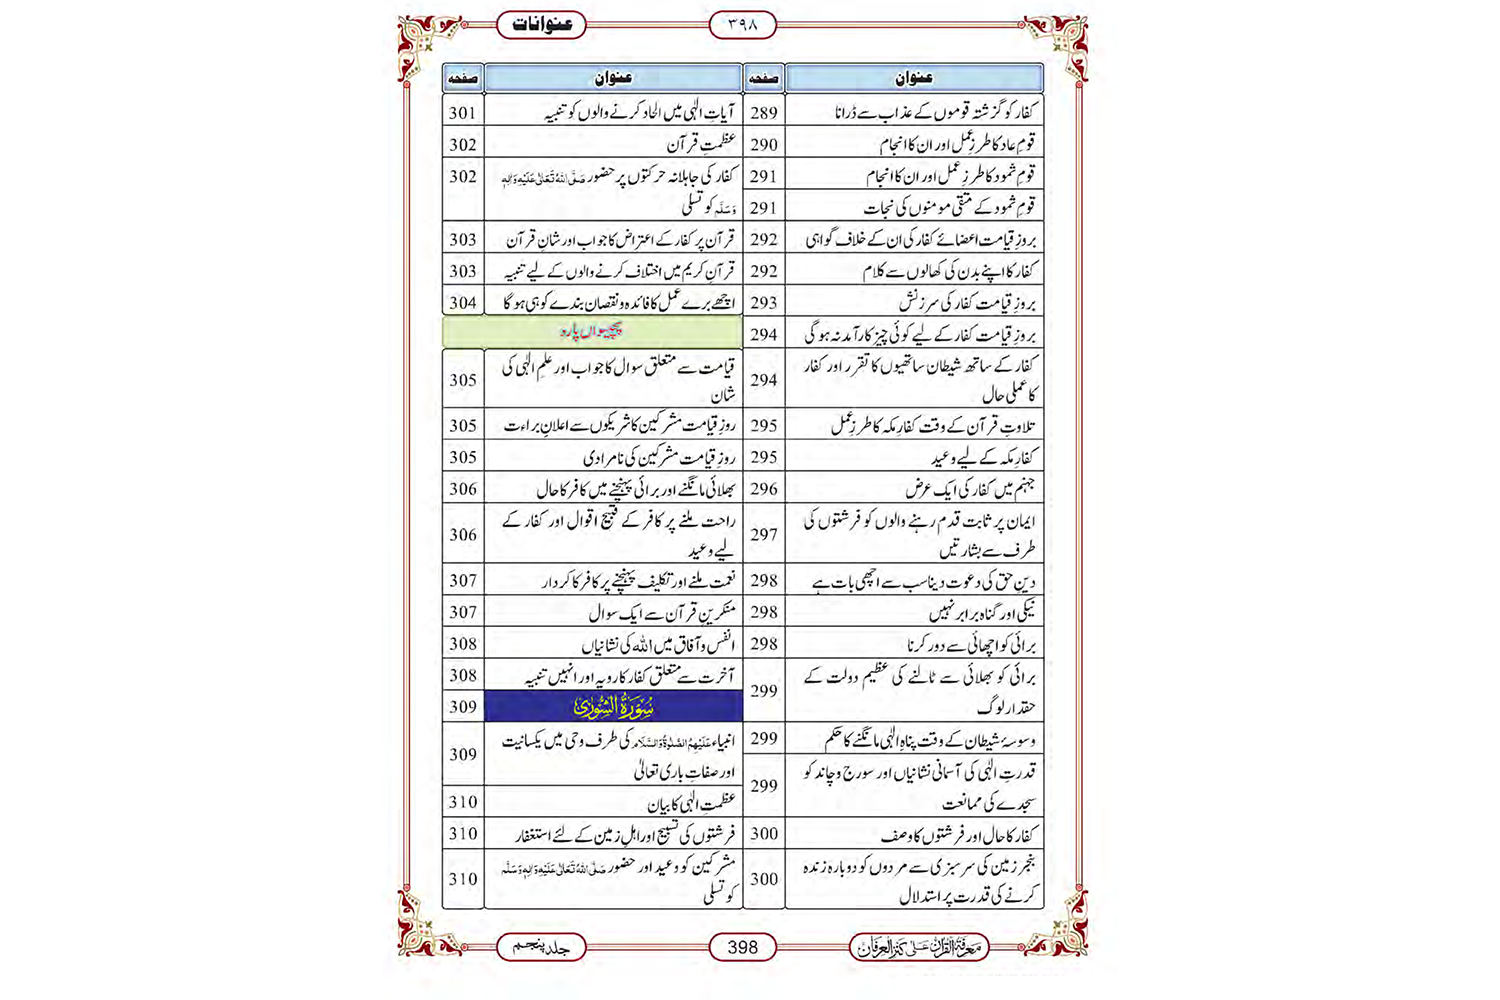 عنوانات
۳۹۸
عنوان صفحہ
کفار کو گزشتہ قوموں کے عذاب سے ڈرانا 289
قومِ عاد کا طرزِ عمل اور ان کا انجام 290
قومِ ثمود کا طرزِ عمل اور ان کا انجام 291
قومِ ثمود کے متقی مومنوں کی نجات 291
بروزِ قیامت اعضائے کفار کی ان کے خلاف گواہی 292
کفار کا اپنے بدن کی کھالوں سے کلام 292
بروزِ قیامت کفار کی سرزنش 293
بروزِ قیامت کفار کے لیے کوئی چیز کارآمد نہ ہوگی 294
کفار کے ساتھ شیطان ساتھیوں کا تقرر اور کفار
کا عملی حال 294
تلاوتِ قرآن کے وقت کفارِ مکہ کا طرزِ عمل 295
کفارِ مکہ کے لیے وعید 295
جہنم میں کفار کی ایک عرض 296
ایمان پر ثابت قدم رہنے والوں کو فرشتوں کی
طرف سے بشارتیں 297
دینِ حق کی دعوت دینا سب سے اچھی بات ہے 298
نیکی اور گناہ برابر نہیں 298
برائی کو اچھائی سے دور کرنا 298
برائی کو بھلائی سے ٹالنے کی عظیم دولت کے
حقدار لوگ 299
وسوسۂ شیطان کے وقت پناہِ الٰہی مانگنے کا حکم 299
قدرتِ الٰہی کی آسمانی نشانیاں اور سورج و چاند کو
سجدے کی ممانعت 299
کفار کا حال اور فرشتوں کا وصف 300
بنجر زمین کی سرسبزی سے مردوں کو دوبارہ زندہ
کرنے کی قدرت پر استدلال 300
عنوان صفحہ
آیاتِ الٰہی میں الحاد کرنے والوں کو تنبیہ 301
عظمتِ قرآن 302
کفار کی جاہلانہ حرکتوں پر حضور صَلَّی اللہُ تَعَالٰی عَلَیْہِ وَاٰلِہٖ 302
وَسَلَّم کو تسلی
قرآن پر کفار کے اعتراض کا جواب اور شانِ قرآن 303
قرآنِ کریم میں اختلاف کرنے والوں کے لیے تنبیہ 303
اچھے برے عمل کا فائدہ و نقصان بندے کو ہی ہوگا 304
پچیسواں پارہ
قیامت سے متعلق سوال کا جواب اور علمِ الٰہی کی
شان 305
روزِ قیامت مشرکین کا شریکوں سے اعلانِ براءت 305
روزِ قیامت مشرکین کی نامرادی 305
بھلائی مانگنے اور برائی پہنچنے میں کافر کا حال 306
راحت ملنے پر کافر کے قبیح اقوال اور کفار کے
لیے وعید 306
نعمت ملنے اور تکلیف پہنچنے پر کافر کا کردار 307
منکرینِ قرآن سے ایک سوال 307
انفس و آفاق میں اللہ کی نشانیاں 308
آخرت سے متعلق کفار کا رویہ اور انہیں تنبیہ 308
سُوْرَۃُ الشُّوْرٰی 309
انبیاء عَلَیْہِمُ الصَّلٰوۃُ وَالسَّلَام کی طرف وحی میں یکسانیت
اور صفاتِ باری تعالیٰ 309
عظمتِ الٰہی کا بیان 310
فرشتوں کی تسبیح اور اہلِ زمین کے لئے استغفار 310
مشرکین کو وعید اور حضور صَلَّی اللہُ تَعَالٰی عَلَیْہِ وَاٰلِہٖ وَسَلَّم
کو تسلی 310
معرفۃ القرآن علی کنز العرفان
398
جلد پنجم